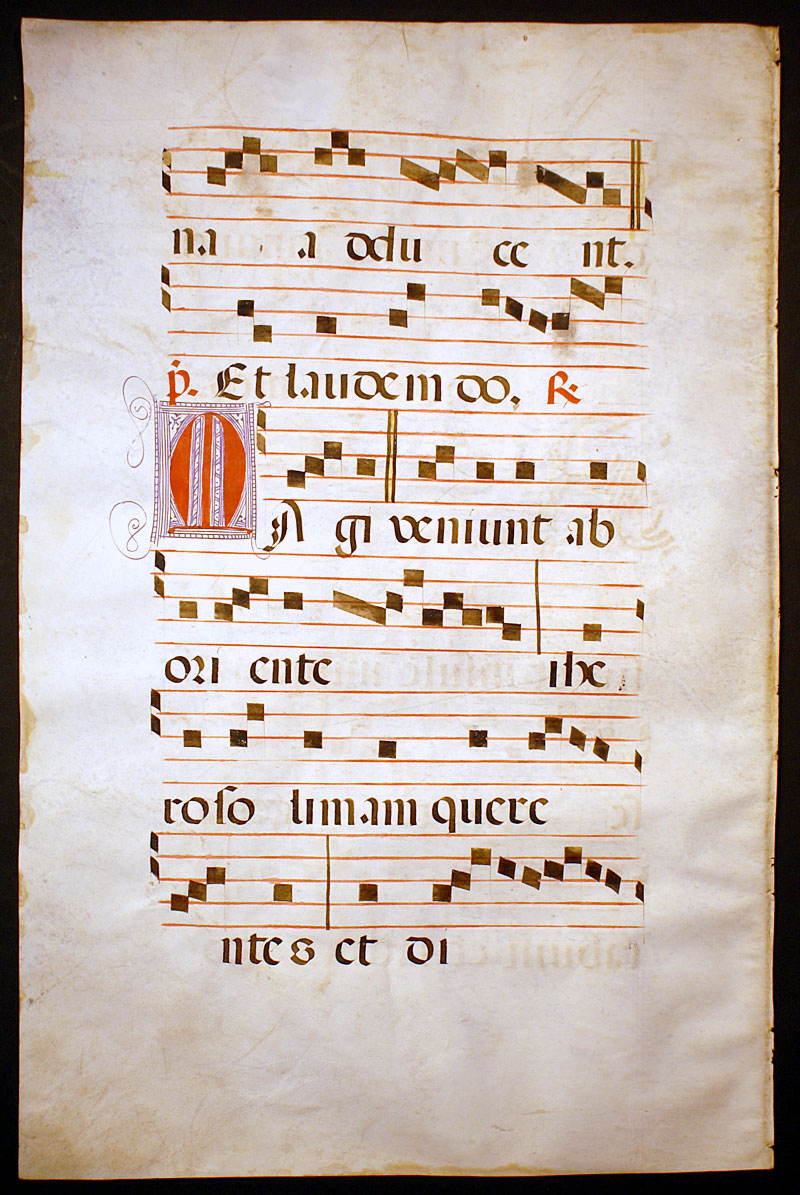 na a delu ce nt.
p̄. Et laudem do. R.
MA gi veniunt ab
ori ente ihe
roso limam quere
ntes et di